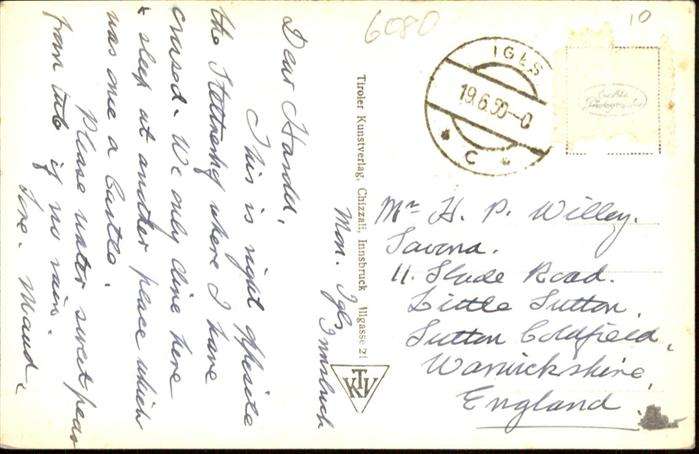 6080
10
IGLS
19.6.50-0
C
Echte
Photographie
Mon. Igls
Innsbruck
Dear Harold,
This is right opposite
the where I have
crossed. We only dine here
& sleep at another place which
was once a Castle.
Please water sweet peas
from tub if no rain.
Love. Maud.
Tiroler Kunstverlag, Chizzali, Innsbruck, Illgasse 21
TKV
Mr H. P. Willey.
Savona.
11. Slade Road.
Little Sutton,
Sutton Coldfield,
Warwickshire,
England.